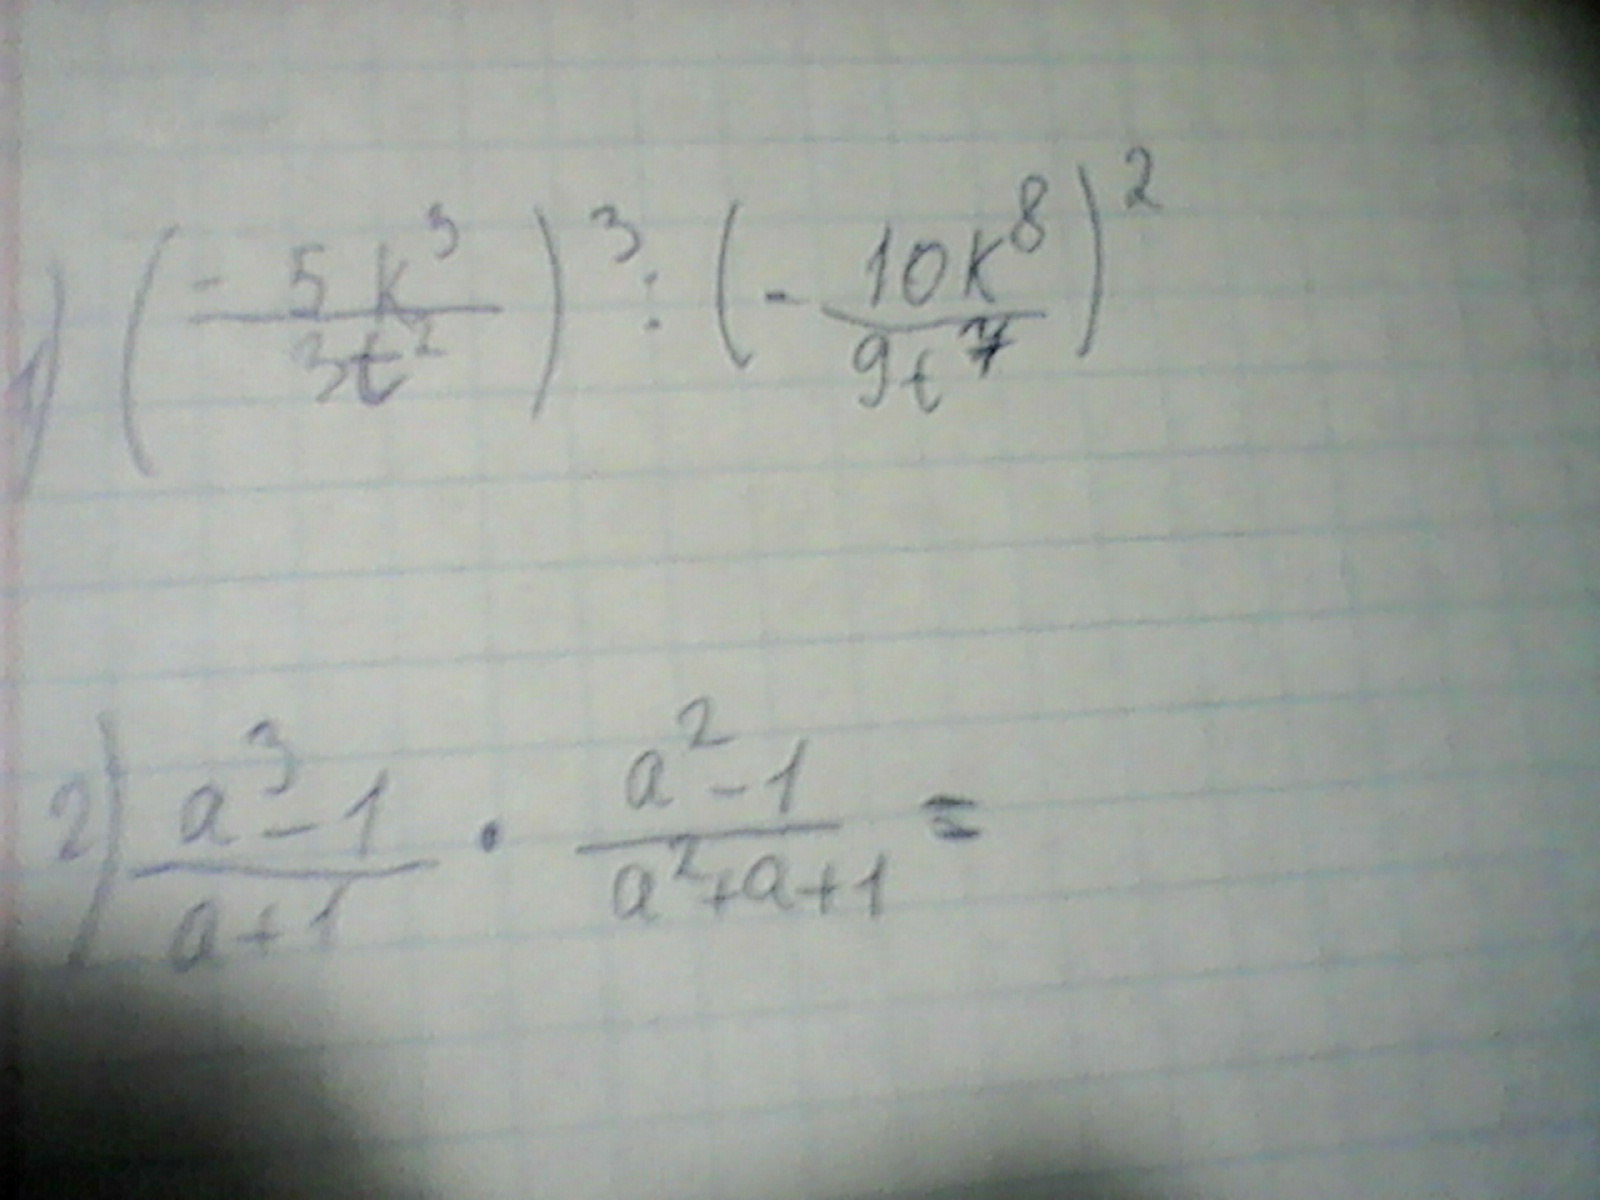 1) (-5k³/3t²)³ : (-10k⁸/9t⁷)²
2) a³-1/a+1 · a²-1/a²+a+1 =